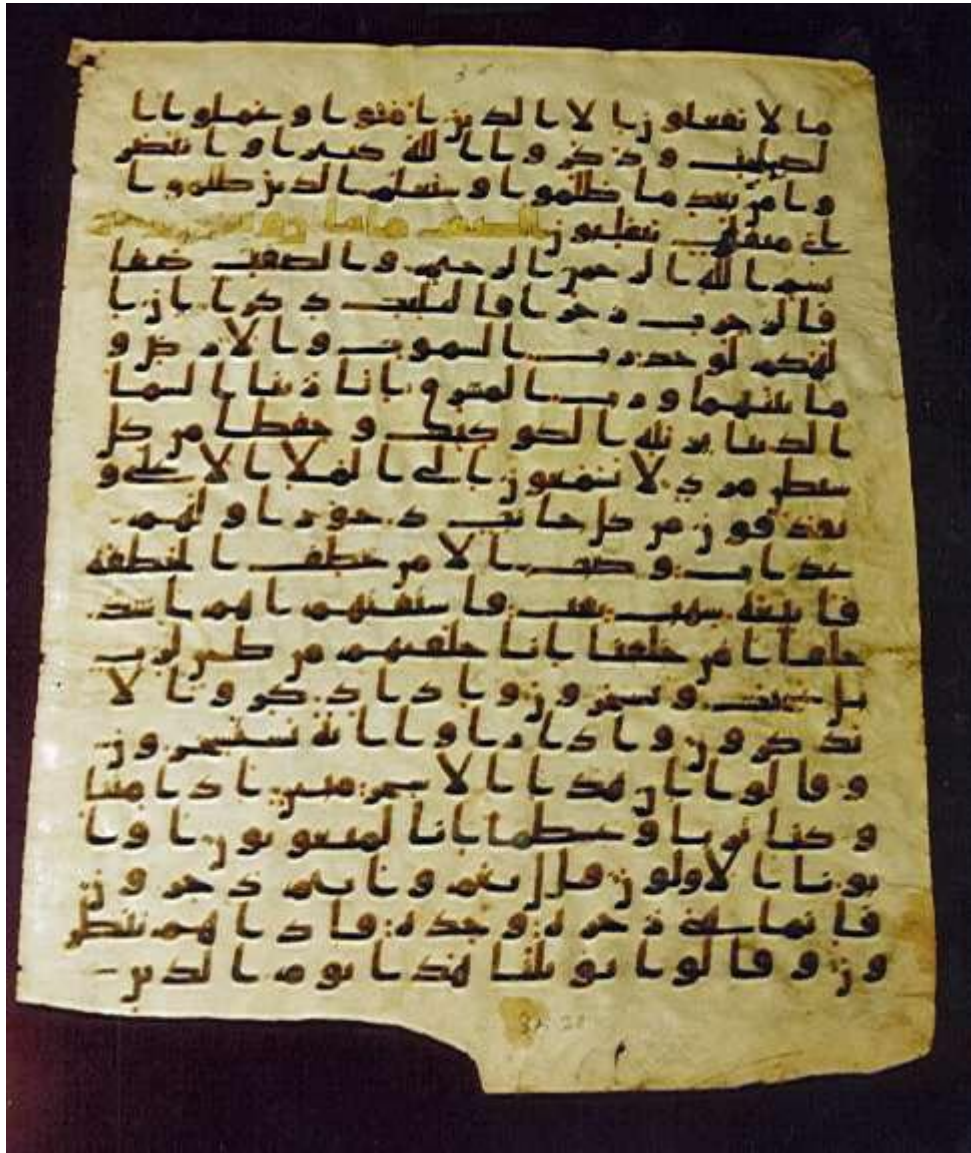 ما لا يفعلون الا الذين امنوا وعملوا ا
لصلحت وذكروا الله كثيرا وانتصر
وا من بعد ما ظلموا وسيعلم الذين ظلموا ا
ي منقلب ينقلبون الصفت مائة
بسم الله الرحمن الرحيم والصفت صفا
فالزجرت زجرا فالتليت ذكرا ان ا
لهكم لوحد رب السموت والارض و
ما بينهما ورب المشرق انا زينا السما
الدنيا بزينة الكوكب وحفظا من كل
شيطن مرد لا يسمعون الى الملا الاعلى و
يقذفون من كل جانب دحورا ولهم
عذاب وصب الا من خطف الخطفة
فاتبعه شهب ثقب فاستفتهم اهم اشد
خلقا ام من خلقنا انا خلقنهم من طين لزب
بل عجبت ويسخرون واذا ذكروا لا
يذكرون واذا راوا اية يستسخرون
وقالوا ان هذا الا سحر مبين اذا متنا
وكنا ترابا وعظما انا لمبعوثون او ا
باونا الاولون قل نعم وانتم دخرون
فانما هي زجرة وحدة فاذا هم ينظر
ون وقالوا يويلنا هذا يوم الدين